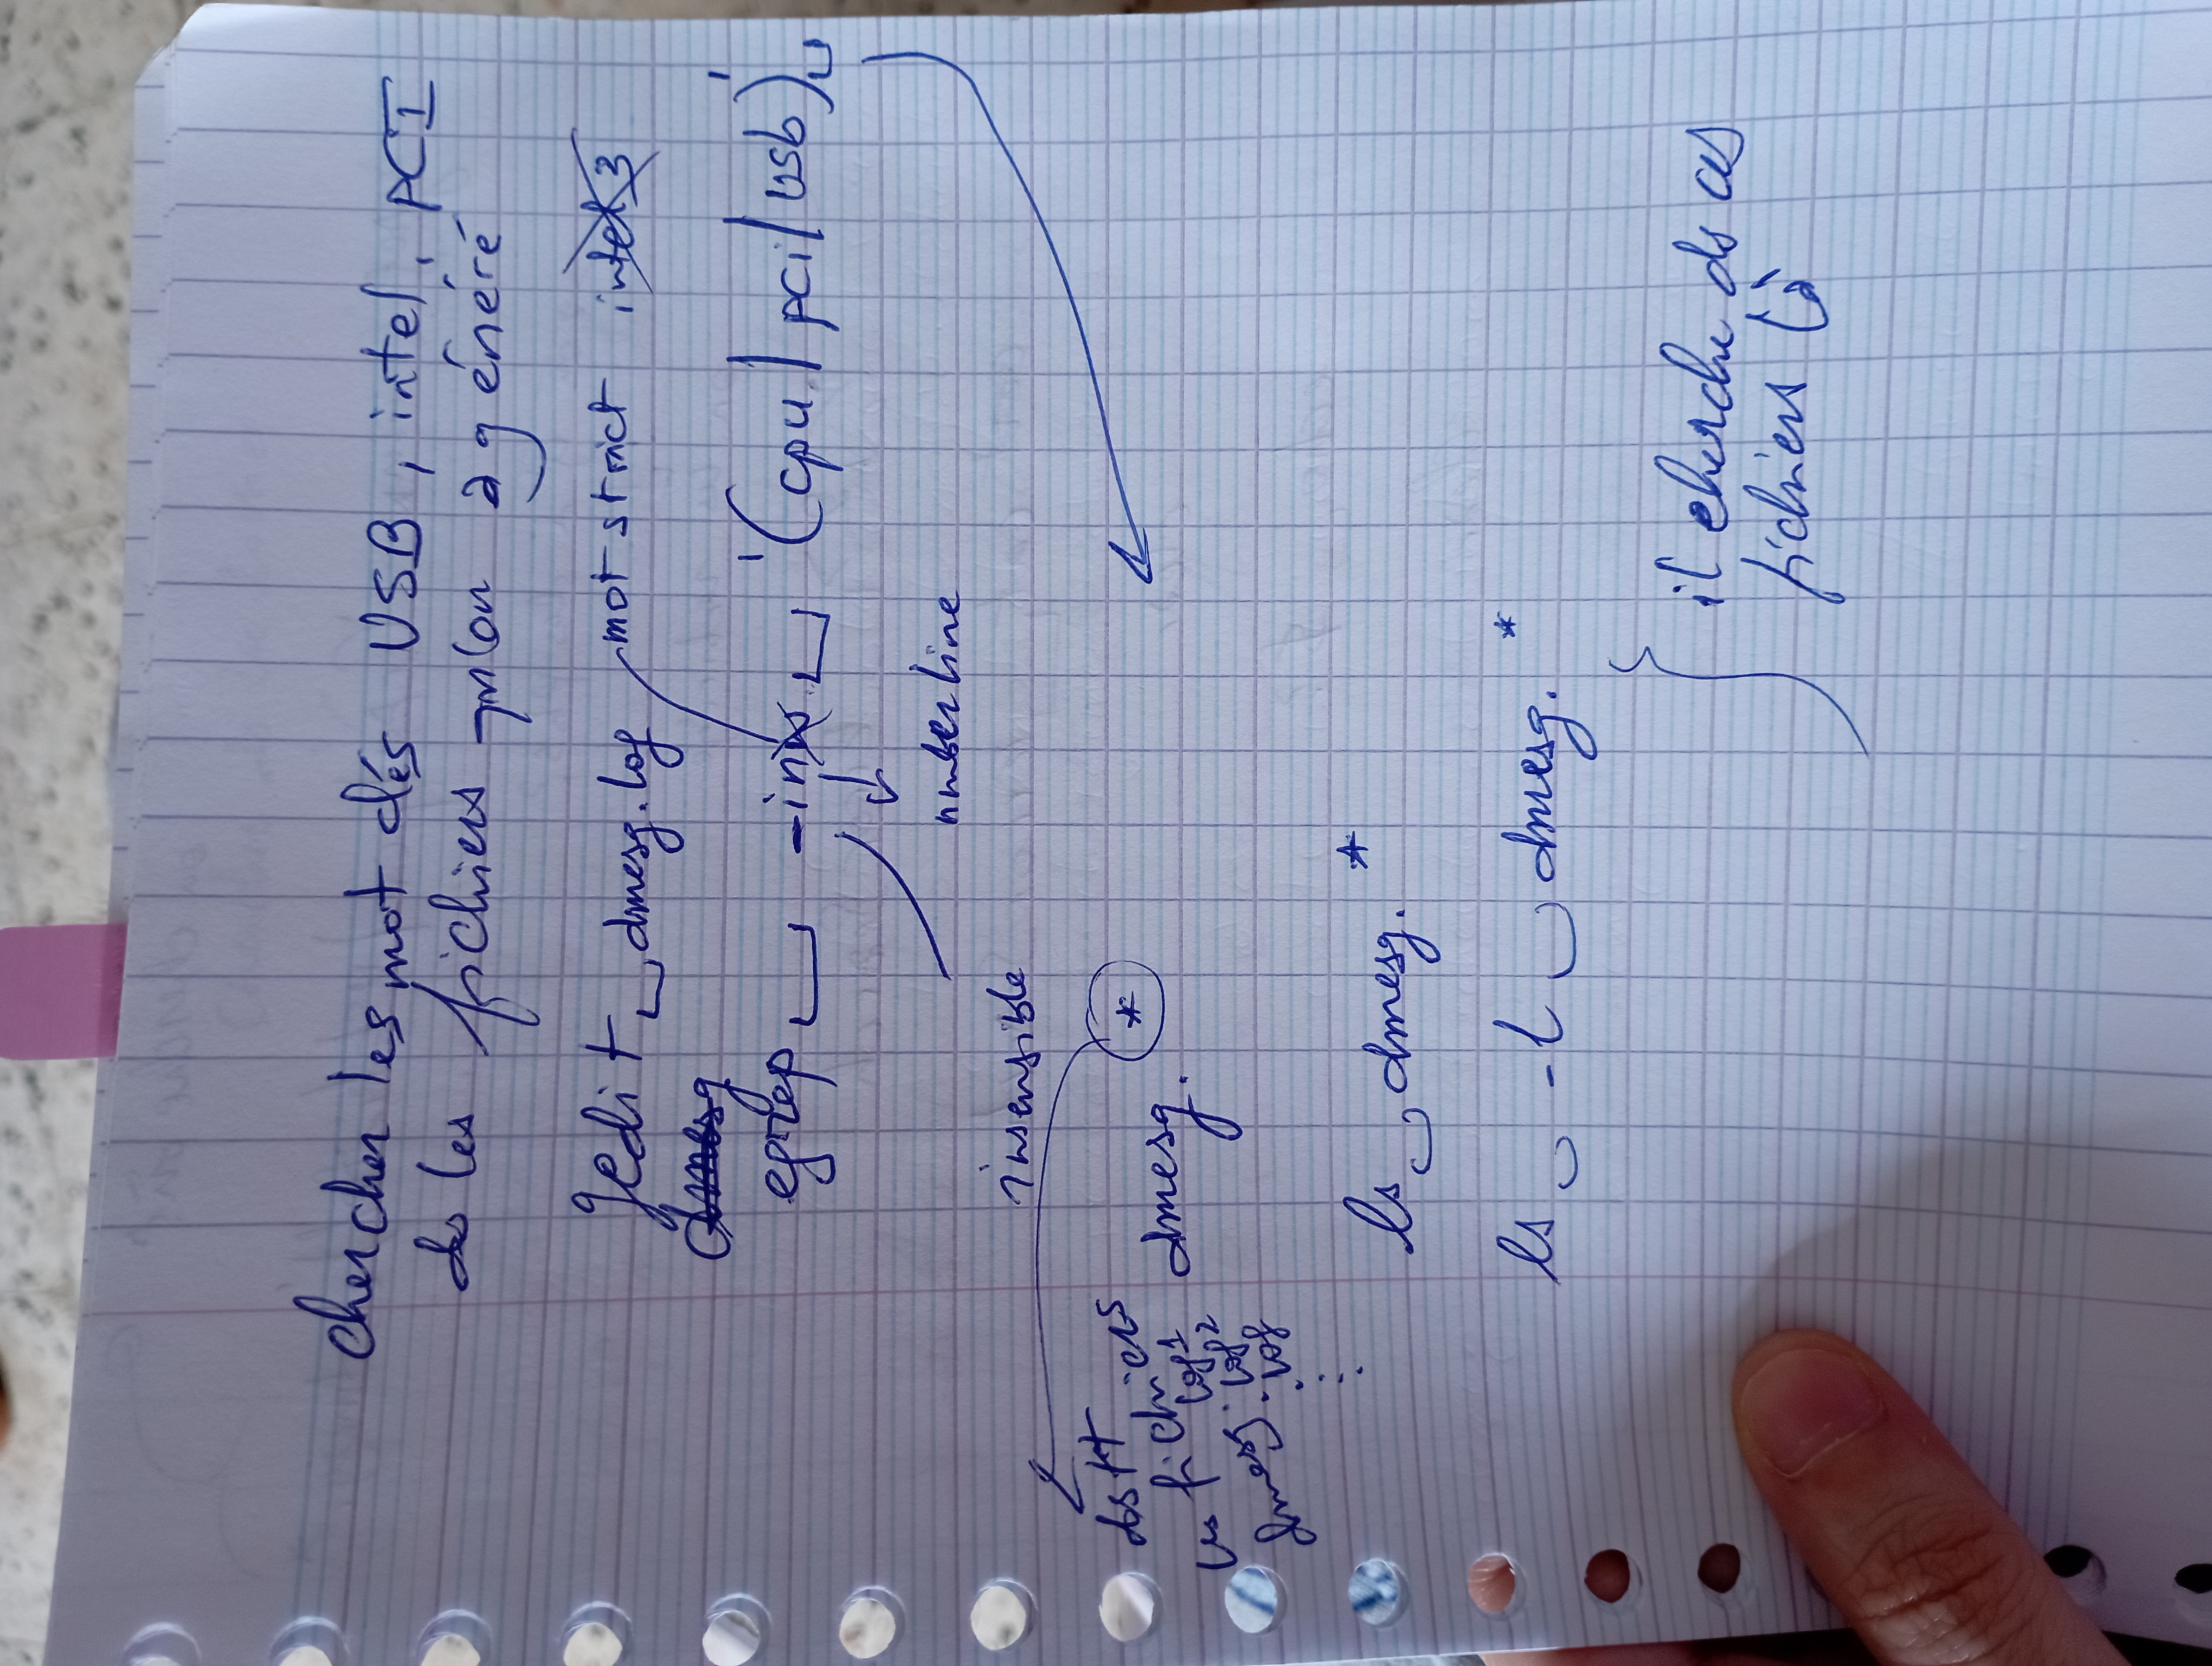 chercher les mot clés USB, intel, PCI
ds les fichiers qu'on a généré
gedit ⎵ dmesg.log
mot strict intel 3
dmesg
egrep ⎵ -in ⎵ '(cpu|pci|usb)' ⎵
number line
insensible
ds tt
les fichiers
dmesg.log1
.log2
.log
dmesg.*
ls ⎵ dmesg.*
ls ⎵ -l ⎵ dmesg.*
il cherche ds ces
fichiers là